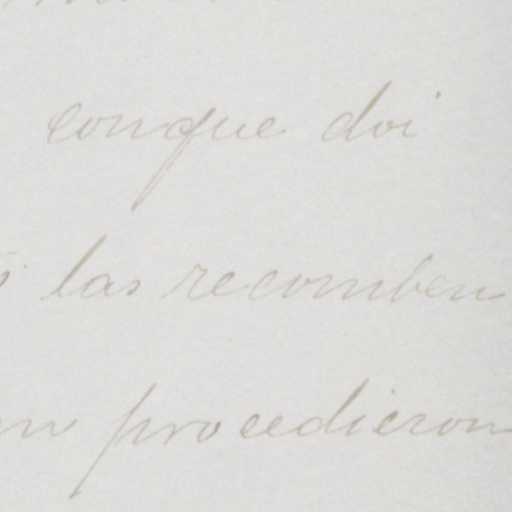 conque doi
las recomben
procedieron